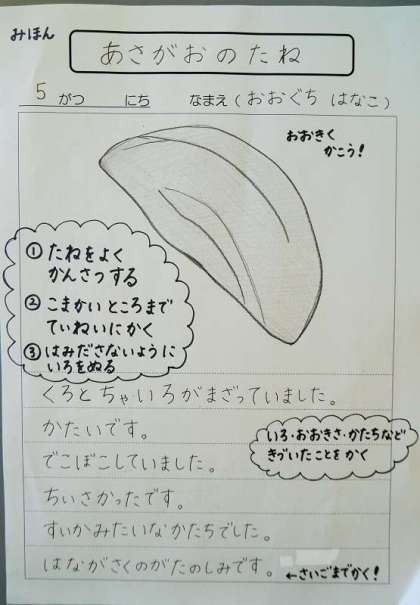 みほん
あさがおのたね
5 がつ にち なまえ（おおぐち はなこ）
おおきく
かこう！
① たねをよく
かんさつする
② こまかいところまで
ていねいにかく
③ はみださないように
いろをぬる
くろとちゃいろがまざっていました。
かたいです。
いろ・おおきさ・かたちなど
きづいたことをかく
でこぼこしていました。
ちいさかったです。
すいかみたいなかたちでした。
はながさくのがたのしみです。
←さいごまでかく！